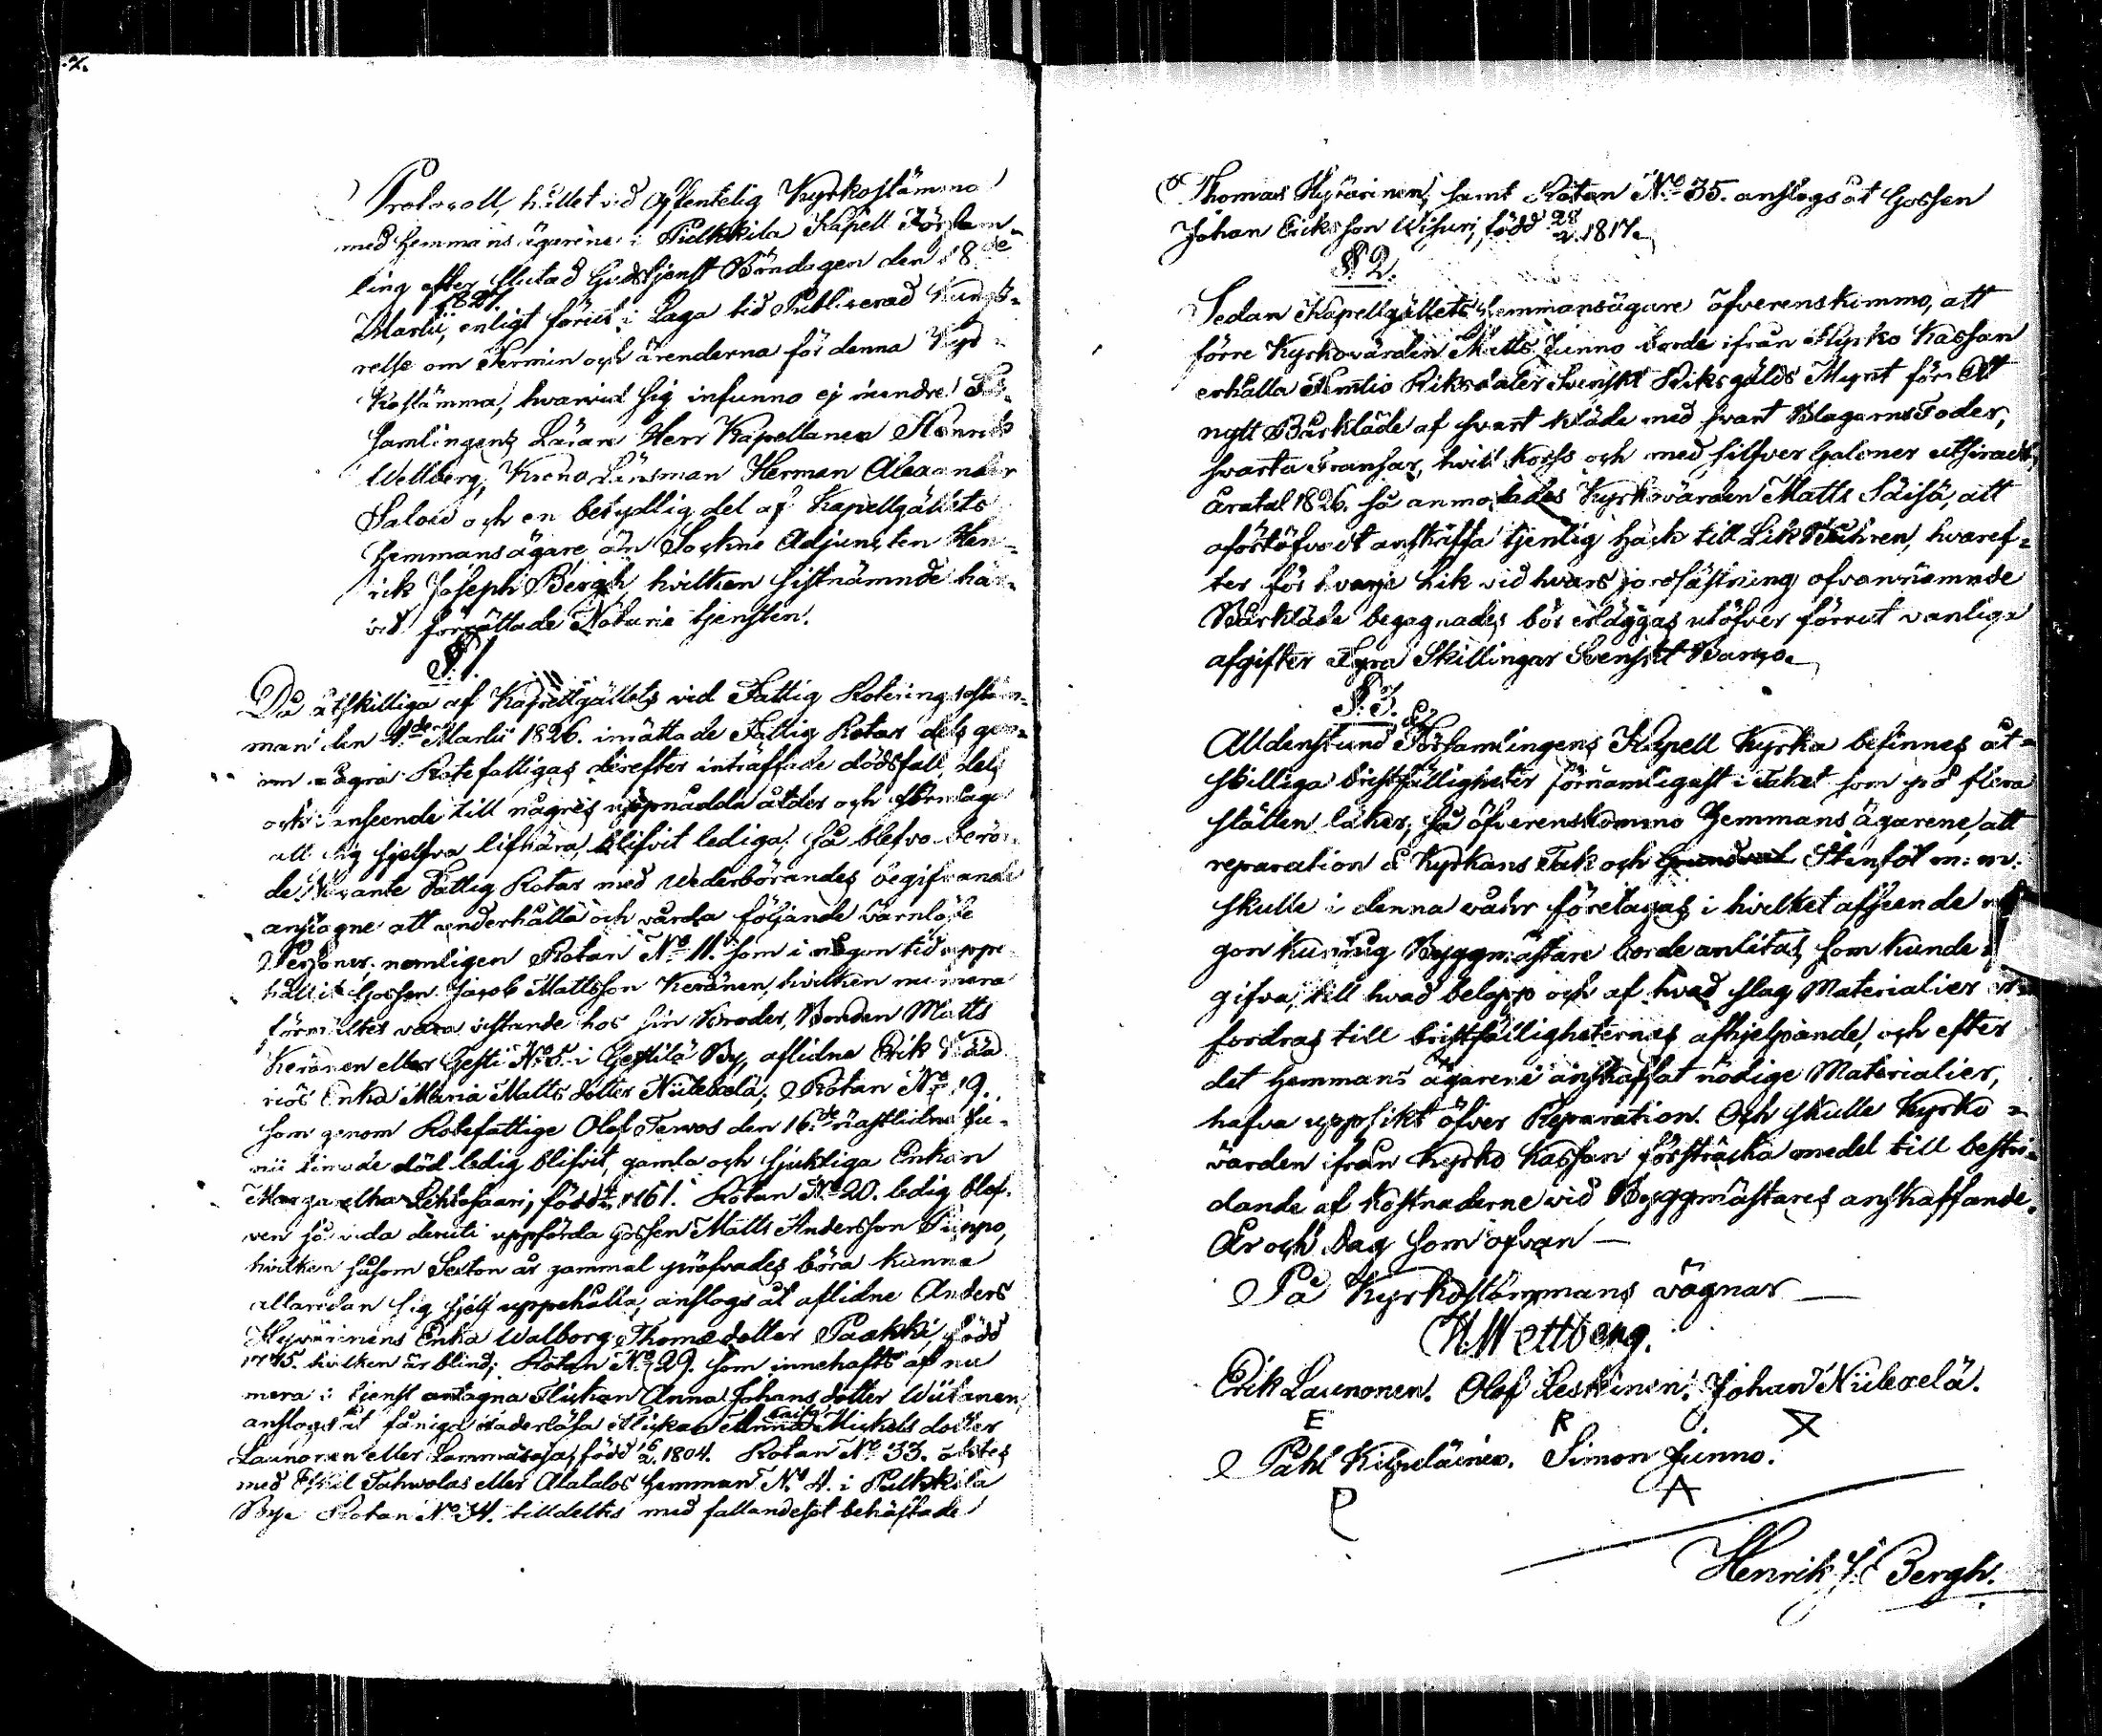 Protocoll, hållet vid Offentelig Kyrkostämma
med Hemmans ägarene i Pulkkila Kapell Församling
ling efter slutad Gudstjenst Böndagen den 18de
1827.
Martii, enligt förut i Laga tid Publicerad Kungö-
relse om Termin och ärenderna för denna Kyr-
kostämma, hvarvid sig infunno ej mindre För-
samlingens Lärare Herr Kapellanen Henrik
Wettberg, Krono Länsman Herman Alexander
Salovius och en betydlig del af Kapellgällets
Hemmansägare, än Sockne Adjuncten Hen-
rick Joseph Bergh, hvilken sistnämnde här-
vid förrättade Notarie tjensten.
§. 1.
Då åtskilliga af Kapellgällets vid Fattig Rotering stäm-
man den 1de Martii 1826. inrättade Fattig Rotar dels gen-
om några Rotefattigas derefter inträffade dödsfall, dels
och i anseende till någres uppnådda ålder och förmåga
att sig sjelfva lifnära, blifvit lediga; så blefvo berör-
de Vacante Fattig Rotar med Wederbörandes begifvande
anslagne att underhålla och vårda följande värnlöse
Personer, nemligen Rotan No 11. som i någon tid uppe-
hållit Gossen Jacob Mattsson Keränen, hvilken numera
förmältes vara vistande hos sin Broder, Bonden Matts
Keränen eller Gesti No 5. i Gestilä By, aflidne Erik
Enka Maria Matts dotter Niilexelä; Rotan No 19.
som genom Rotefattige Olof Tervos den 16de nästlidne Ju-
nii timade död ledig blifvit, gamla och sjukliga Enkan
Margaretha Lehtosaari, född 1761. Rotan No 20. ledig blef-
ven så vida deruti uppförda Gossen Matts Andersson Piippo,
hvilken såsom Sexton år gammal pröfvades böra kunna
allaredan sig sjelf uppehålla, anslogs åt aflidne Anders
Hyvärinens Enka Walborg Thomædotter Paakki, född
1745. hvilken är blind; Rotan No 29. som innehafts af nu
mera i tjenst antagna Flickan Anna Johans dotter Wiitanen,
anslogs åt fåniga vaderlösa Flickan Anna Caisa Michels dotter
Launonen eller Lammasoja, född 16/2. 1804. Rotan No 33. ökstes
med Tahwolas eller Alatalos Hemman No 4. i Pulkkila
By. Rotan No 34. tilldeltes med fallandesot behäftade
Thomas Hyvärinen, samt Rotan No 35. anslogs åt Gossen
Johan Eriksson Wihuri, född 28/2. 1817.
§. 2.
Sedan Kapellgällets Hemmansägare öfverenskommo, att
förre Kyrkovärden Matts Junno borde ifrån Kyrko Kassan
erhålla Femtio Riksdaler Svenskt Riksgälds Mynt för Ett
nytt Bårkläde af svart kläde med svart Blagarns Foder,
svarta Fransar, hvitt Korss och med silfver Galoner utsiradt,
Åratal 1826. så anmodades Kyrkovärden Matts Säisä, att
oförtöfvadt anskaffa tjenlig Häck till Lik Båhren, hvaref-
ter för hvarje Lik vid hvars jordfästning ofvannämnde
Bårkläde begagnades bör erläggas utöfver förrut vanliga
afgifter Fyra Skillingar Svenskt Banco.
§. 3.
Alldenstund Församlingens Kapell Kyrka befinnes åt-
skilliga bristfälligheter förnämligast i Taket som på flera
ställen läker; så öfverenskommo Hemmans ägarene, att
reparation å Kyrkans Tak och Grundval Stenfot m: m.
skulle i denna våhr företagas i hvilket afseende nå-
gon kunnig Byggmästare borde anlitas, som kunde
gifva, till hvad belopp och af hvad slag Materialier er-
fordras till bristfälligheternas afhjelpande, och efter
det Hemmans ägarene anskaffat nödige Materialier,
hafva uppsikt öfver Reparation. Och skulle Kyrko-
värden ifrån Kyrko Kassan försträcka medel till bestri-
dande af Kostnaderne vid Byggmästares anskaffande.
År och Dag som ofvan —
På Kyrkostämmans vägnar —
H. Wettberg.
Erik Launonen. Olof Leskinen. Johan Niilexelä.
E R X
Påhl Kilpeläinen. Simon Junno.
P A
Henrik J. Bergh.